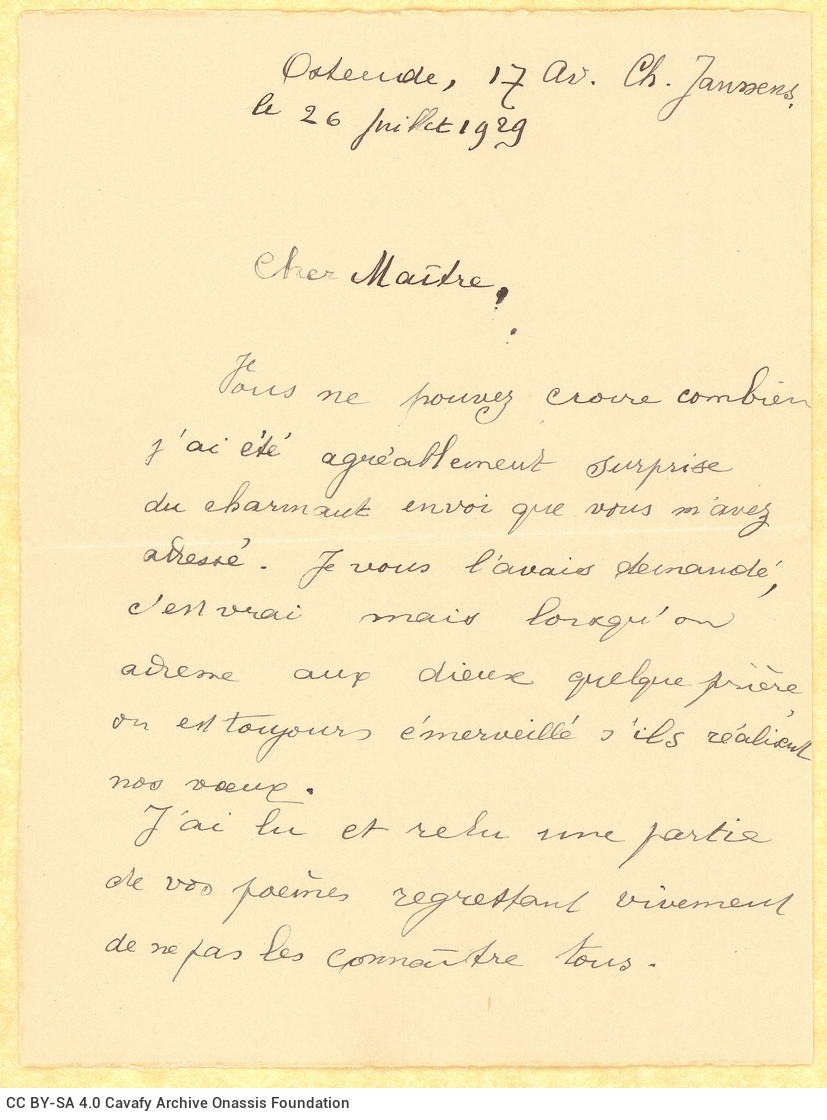 Ostende, 17 Av. Ch. Janssens,
le 26 juillet 1929
Cher Maître,
Vous ne pouvez croire combien
j'ai été agréablement surprise
du charmant envoi que vous m'avez
adressé. Je vous l'avais demandé,
c'est vrai mais lorsqu'on
adresse aux dieux quelque prière,
on est toujours émerveillé s'ils réalisent
nos vœux.
J'ai lu et relu une partie
de vos poèmes regrettant vivement
de ne pas les connaître tous.
CC BY-SA 4.0 Cavafy Archive Onassis Foundation